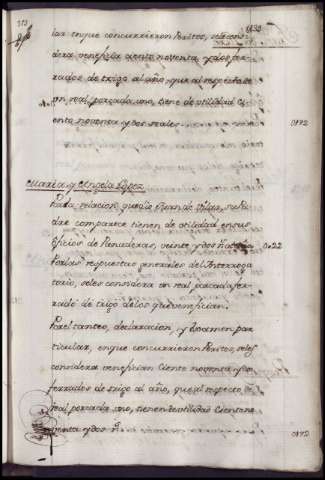 lar en que concurrieron Peritos, se le consi
dera veneficia ciento noventa y dos fer
rados de trigo al año, que al respecto de
un real por cada uno, tiene de utilidad ci
ento noventa y dos reales
0192
Maria y Angela Lopez
Por la relacion que dio Juan de
dre comparece tienen de utilidad en sus
oficios de Panaderas, veinte y dos
0022
Por las respuestas generales del Interroga
torio, se les considera un real por cada fer
rado de trigo de los que venefician.
Por el tanteo, declaracion, y examen par
ticular, en que concurrieron Peritos, se les
considera venefician ciento noventa y dos
ferrados de trigo al año, que al respecto de
real por cada uno, tienen de utilidad ciento no
venta y dos
0192